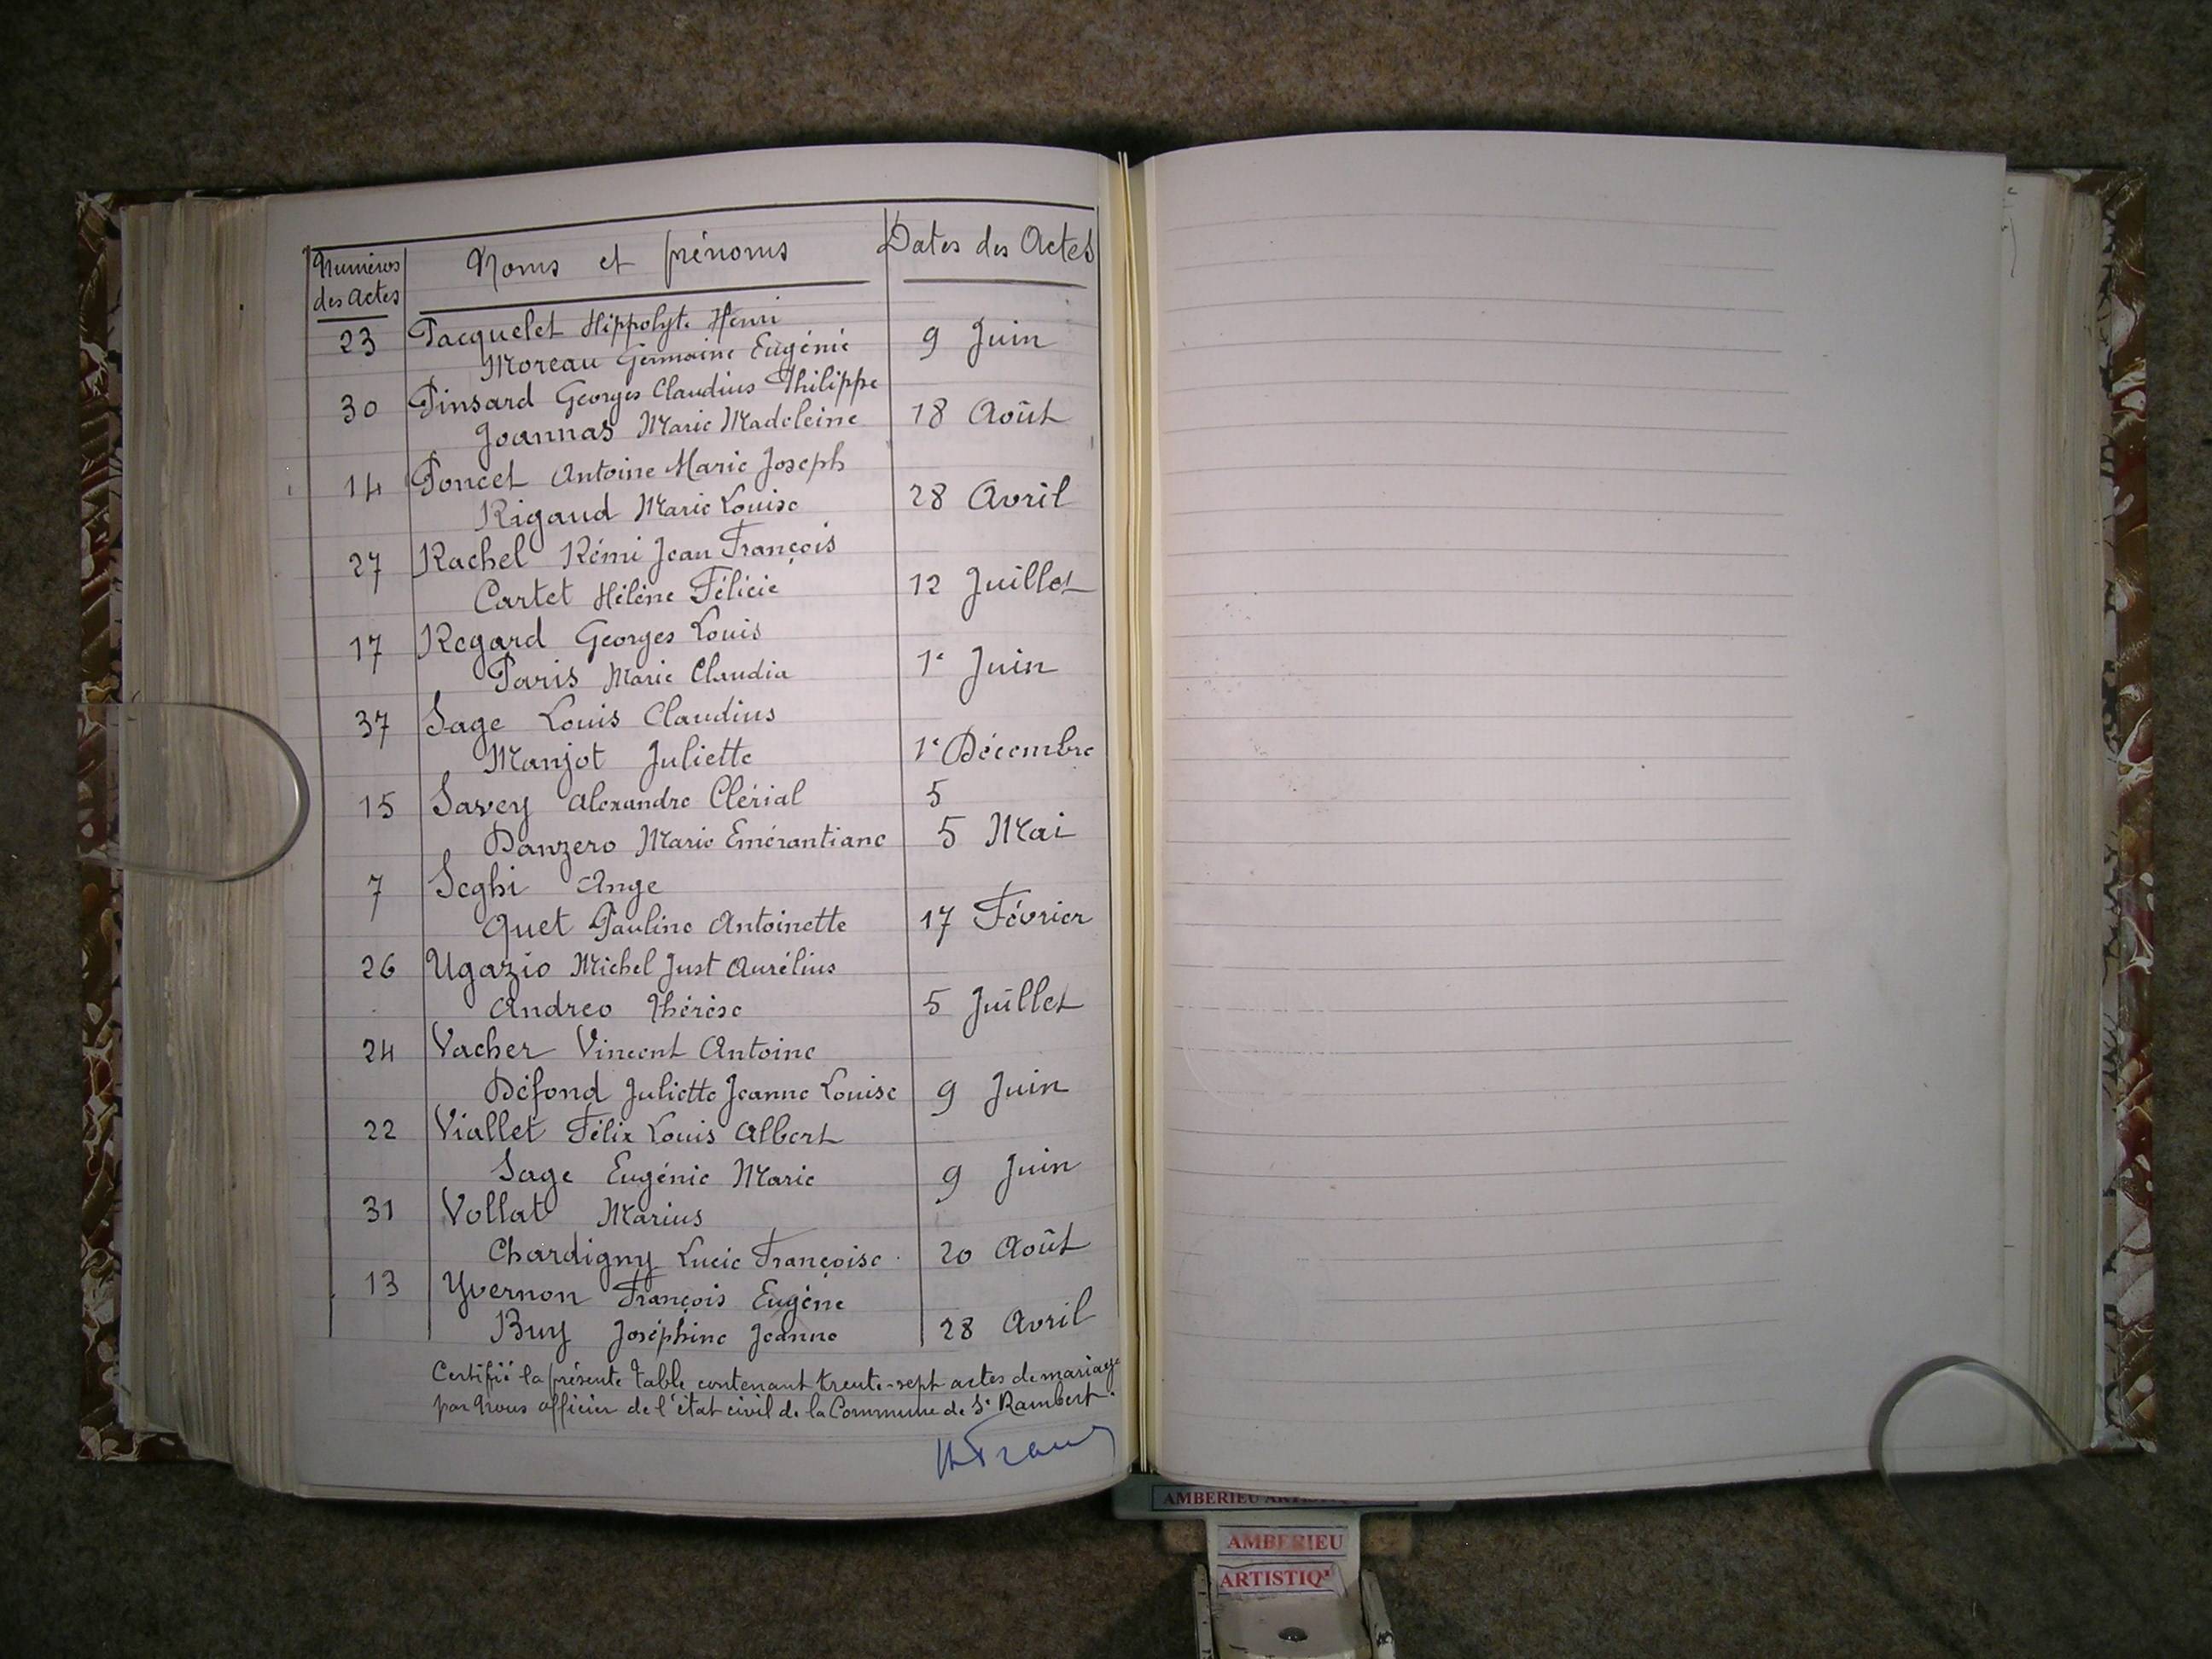 Numéros des Actes Noms et prénoms Dates des Actes
23 Pacquelet Hippolyte Henri
Moreau Germaine Eugénie 9 Juin
30 Pinsard Georges Claudius Philippe
Joannas Marie Madeleine 18 Août
14 Poncet Antoine Marie Joseph
Rigaud Marie Louise 28 Avril
27 Rachel Rémi Jean François
Cartet Hélène Félicie 12 Juillet
17 Regard Georges Louis
Paris Marie Claudia 1e Juin
37 Sage Louis Claudius
Manjot Juliette 1e Décembre
15 Savey Alexandre Clérial 5
Danzero Marie Emérantiane 5 Mai
7 Seghi Ange
Quet Pauline Antoinette 17 Février
26 Ugazio Michel Just Aurélius
Andreo Thérèse 5 Juillet
24 Vacher Vincent Antoine
Défond Juliette Jeanne Louise 9 Juin
22 Viallet Félix Louis Albert
Sage Eugénie Marie 9 Juin
31 Vollat Marius
Chardigny Lucie Françoise 20 Août
13 Yvernon François Eugène
Buy Joséphine Jeanne 28 Avril
Certifié la présente table contenant trente-sept actes de mariage
par Nous officier de l'état civil de la Commune de St Rambert.
AMBERIEU
AMBERIEU
ARTISTIQ